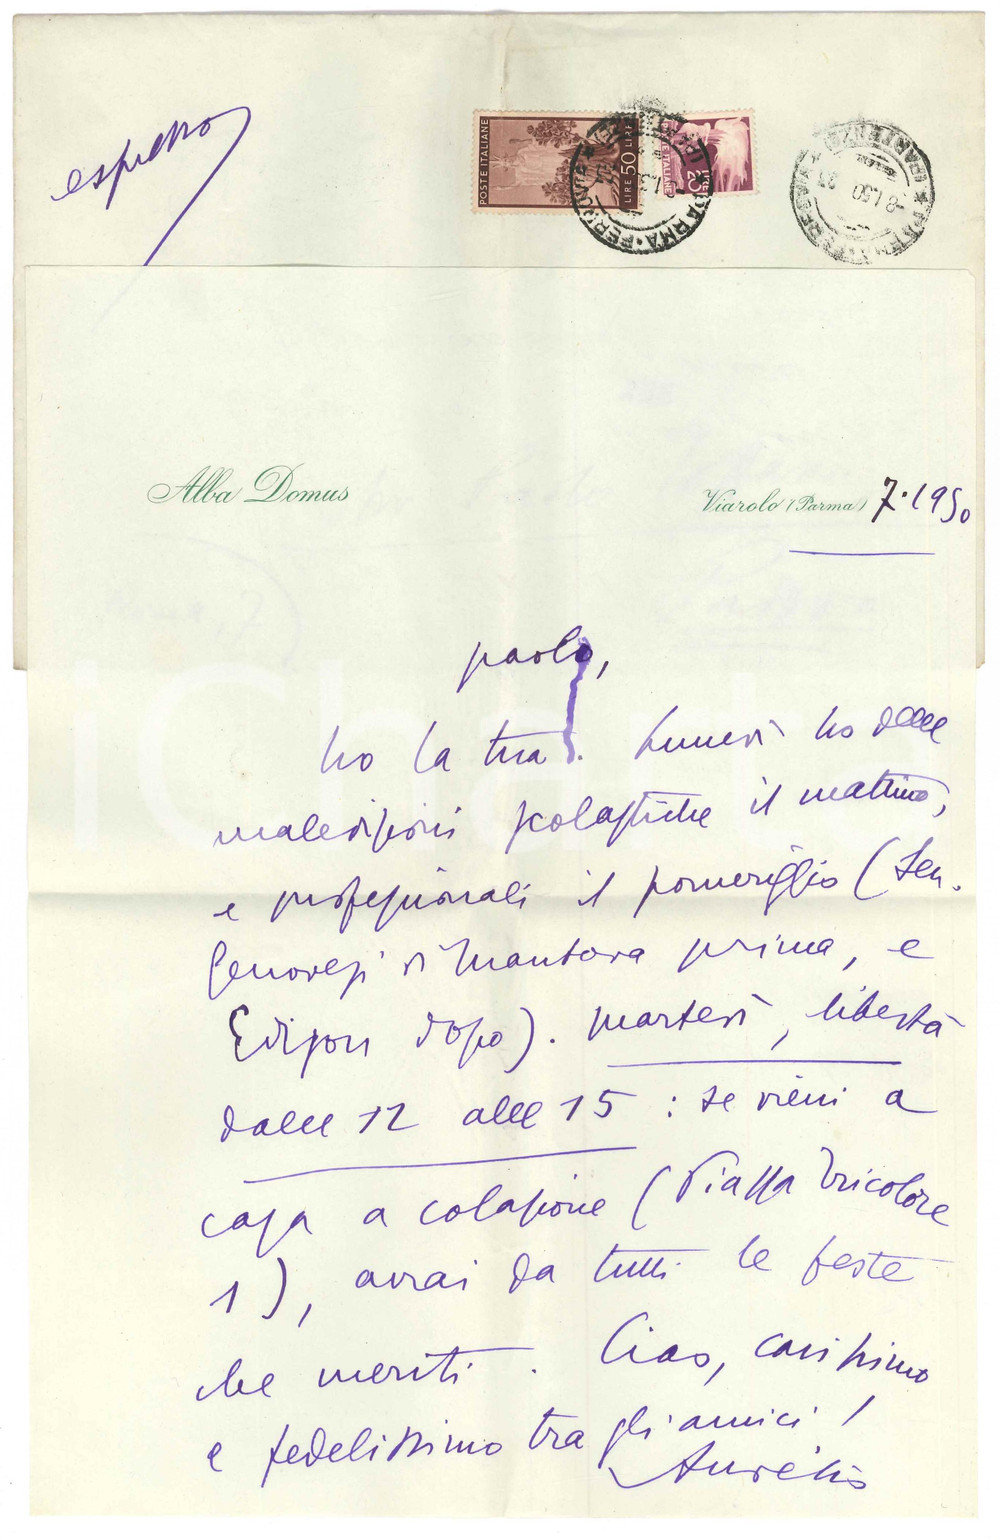 espresso
POSTE ITALIANE
LIRE 50 LIRE
LIRE 20
PARMA · FERROVIA
-8.1.50
Alba Domus
Viarolo (Parma) 7.1950
paolo,
ho la tua. Lunedì ho delle
maledizioni scolastiche il mattino,
e professionali il pomeriggio (Sen.
Genovesi di Mantova prima, e
Edison dopo). martedì, libertà
dalle 12 alle 15 : se vieni a
casa a colazione (Piazza Tricolore
1), avrai da tutti le feste
che meriti. Ciao, carissimo
e fedelissimo tra gli amici!
Aurelio
iCharta